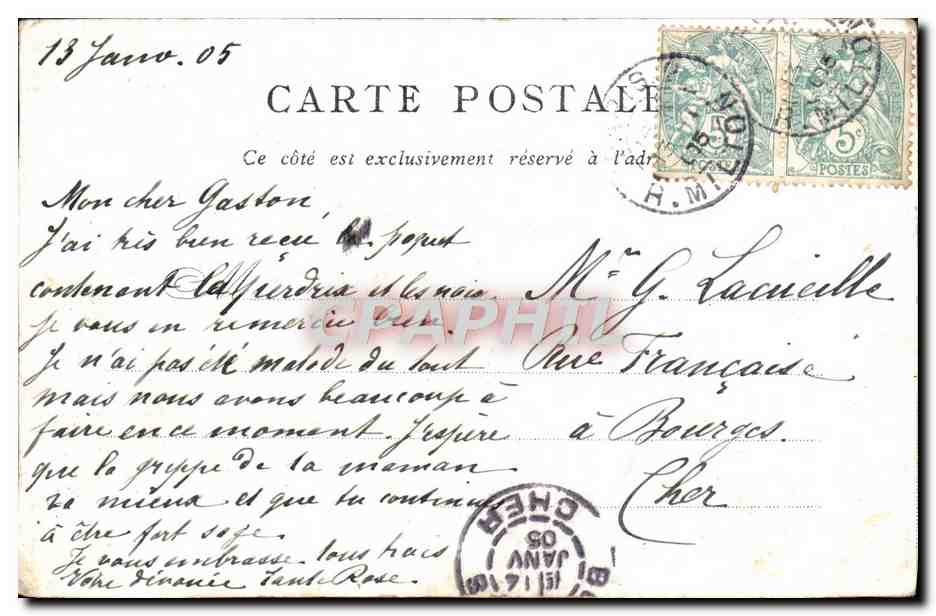 13 Janv. 05
CARTE POSTALE
Ce côté est exclusivement réservé à l'adr
Mon cher Gaston,
J'ai très bien reçu le paquet
contenant la perdrix et les noix
je vous en remercie bien.
Je n'ai pas été malade du tout
mais nous avons beaucoup à
faire en ce moment. J'espère
que la grippe de ta maman
va mieux et que tu continues
à être fort sage.
Je vous embrasse tous trois
Votre dévouée Tante Rose.
Mr G. Lacueille
Rue Française
à Bourges.
Cher
5c
POSTES
5c
POSTES
R. MILTON
R. MILTON
CPAPHIL
CHER
14
JANV
05